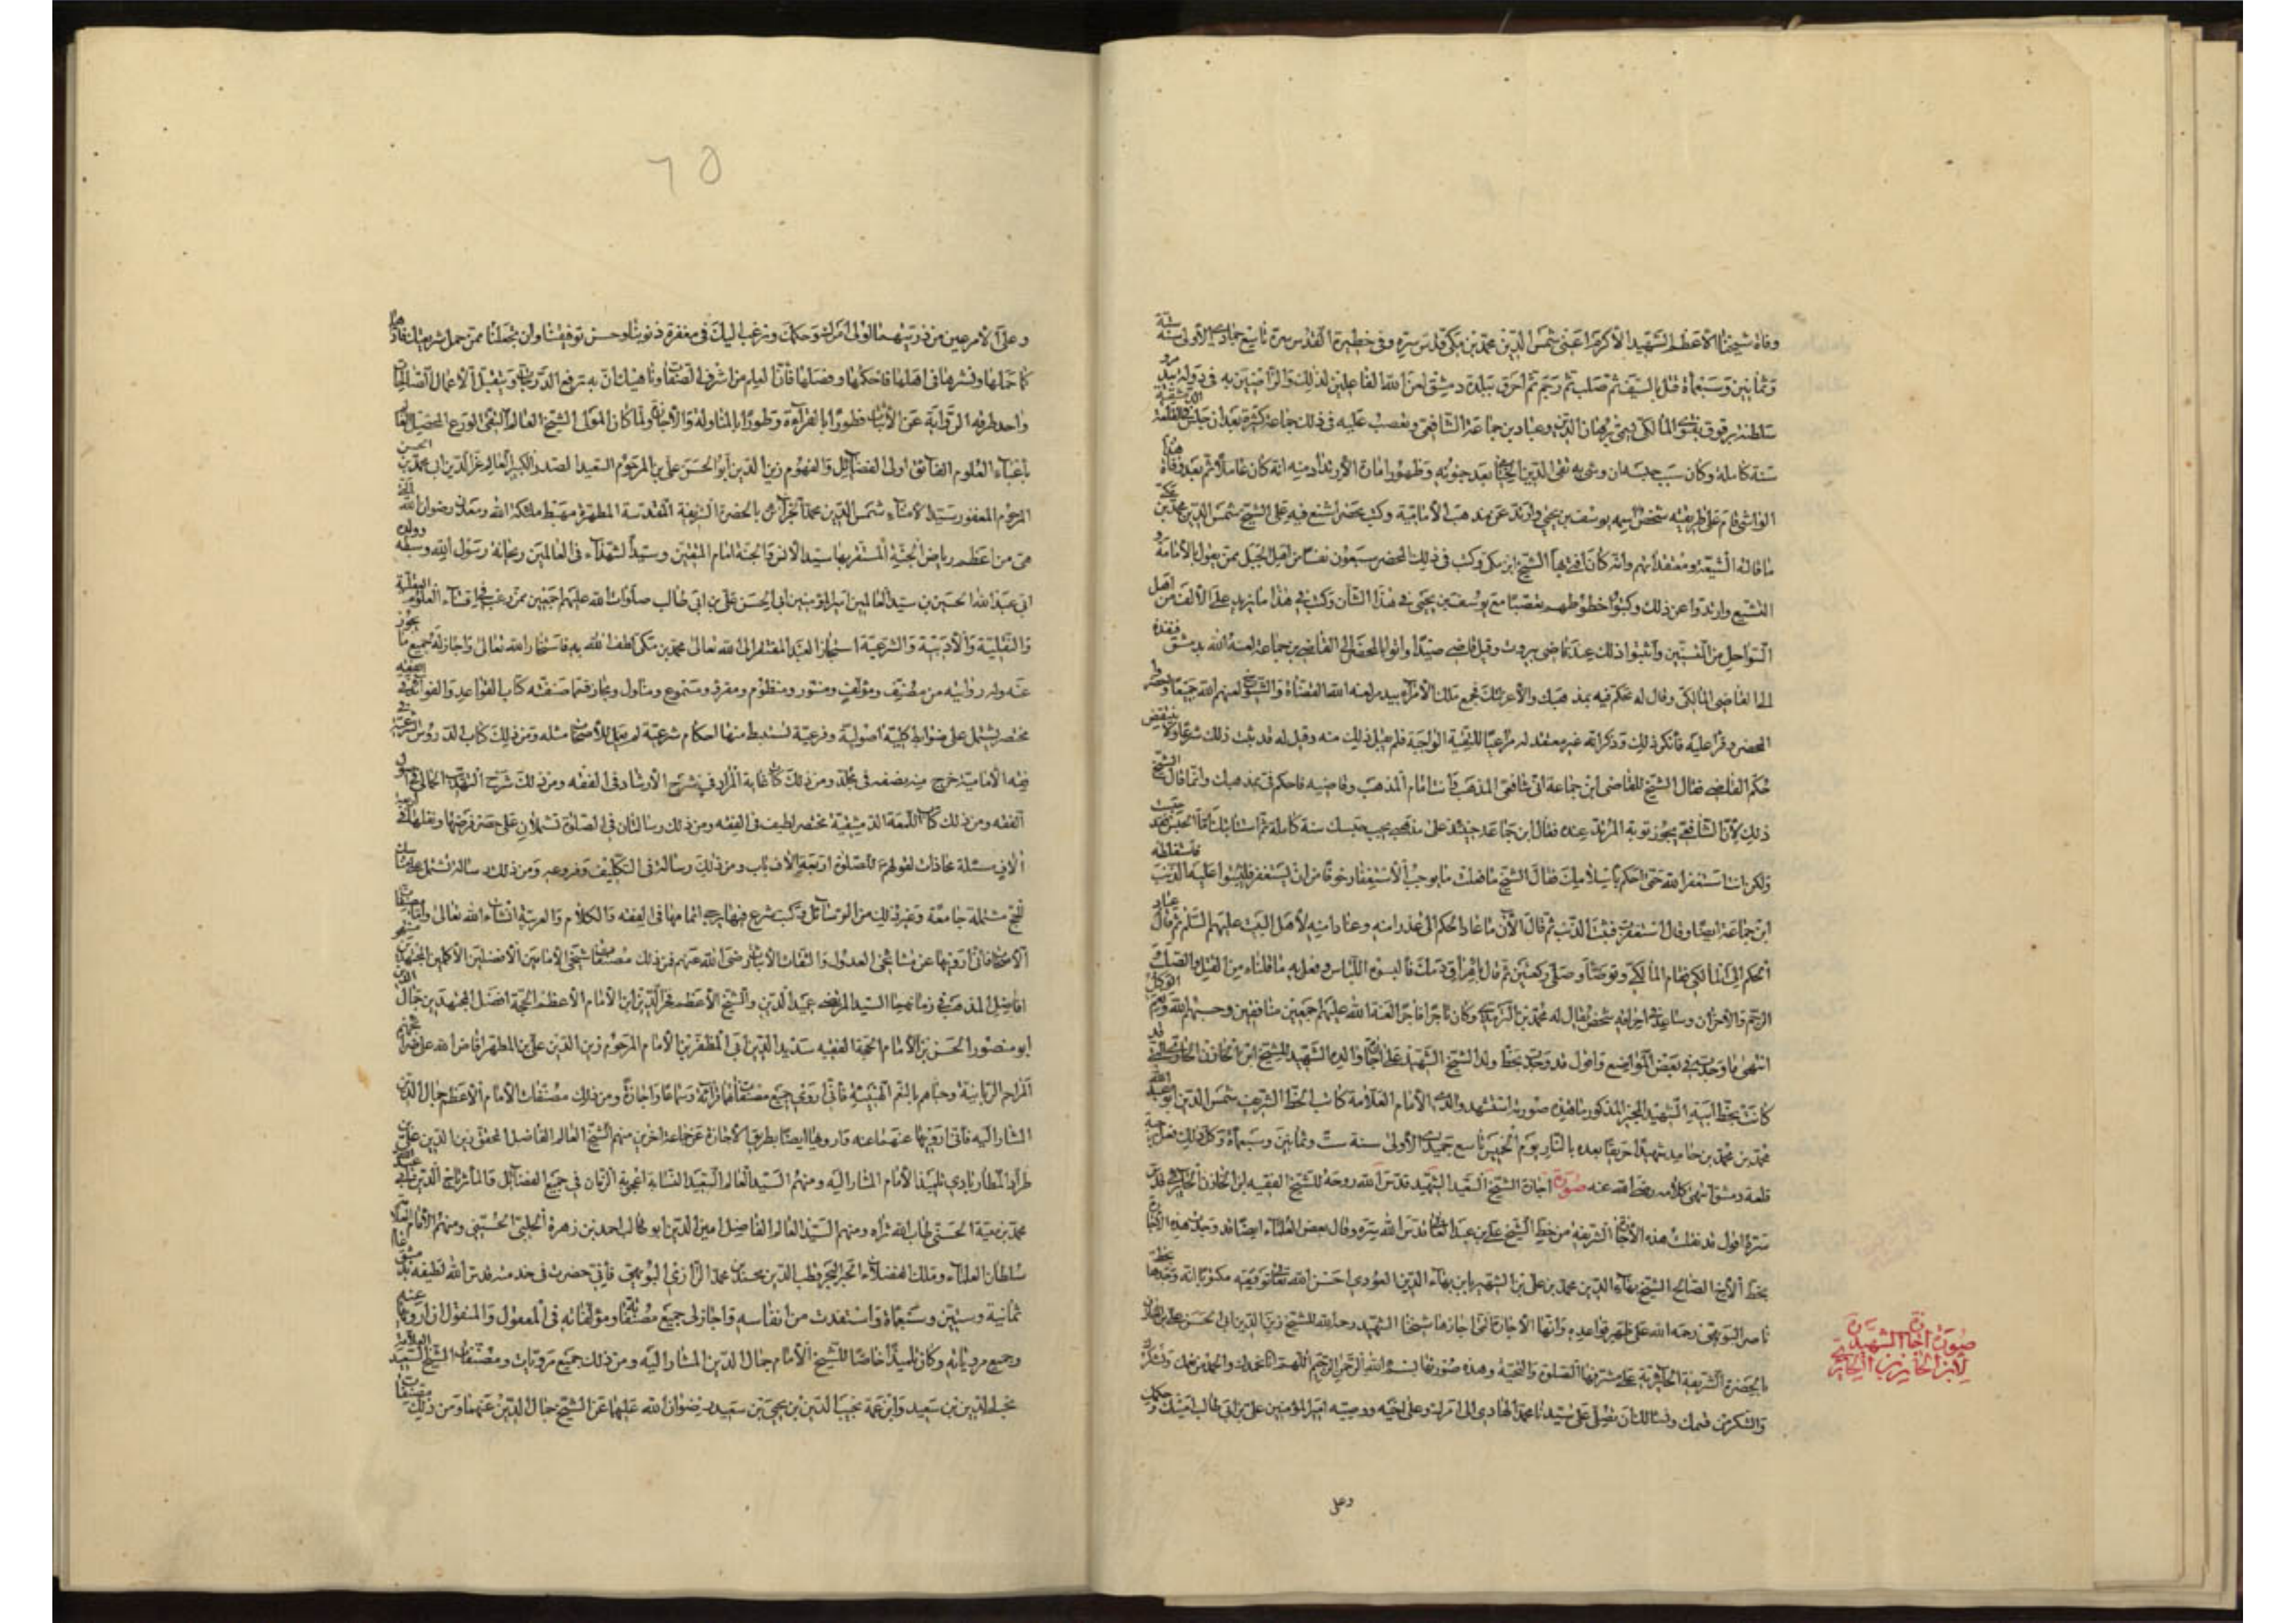 وفاة شيخنا الأعظم الشهيد الأكرم اعني شمس الدين محمد بن مكي قدس سره وفي حظيرة القدس سره تاسع جمادى الأولى سنة ست
وثمانين وسبعمأة قتل بالسيف ثم صلب ثم رجم ثم احرق ببلدة دمشق لعن الله الفاعلين لذلك والراضين به في دولة بيدمر
سلطنة برقوق بفتوى المالكي يسمى برهان الدين وعباد بن جماعة الشافعي وتعصب عليه في ذلك جماعة كثيرة بعد ان حبس في القلعة الدمشقية
سنة كاملة وكان سبب حبسه ان وشى به تقي الدين الجبلي بعد جنونه وظهور امارة الارتداد منه انه كان عاملا ثم بعد وفاة هذا
الواشي قام على طريقته شخص اسمه يوسف بن يحيى وارتد عن مذهب الأمامية وكتب محضرا شنع فيه على الشيخ شمس الدين محمد بن مكي
ما قالته الشيعة ومعتقداتهم وانه كان افتى بها الشيخ ابن مكي وكتب في ذلك المحضر سبعون نفسا من اهل الجبل ممن يقول بالأمامة و
التشيع وارتدوا عن ذلك وكتبوا خطوطهم تعصبا مع يوسف بن يحيى في هذا الشأن وكتب في هذا ما يزيد على الألف من اهل
السواحل من المتسننين واثبتوا ذلك عند قاضي بيروت وقيل قاضي صيدا واتوا بالمحضر الى القاضي بن جماعة لعنه الله بدمشق فنفذه
الى القاضي المالكي وقال له تحكم فيه بمذهبك والا عزلتك فجمع ملك الأمراء بيدمر لعنه الله القضاة والشيوخ لعنهم الله جميعا واحضروا
المحضر وقرأ عليه فأنكر ذلك وذكر انه غير معتقد له مراعيا للتقية الواجبة فلم يقبل ذلك منه وقيل له قد ثبت ذلك شرعا ولا ينتقض
حكم القاضي فقال الشيخ للقاضي ابن جماعة اني شافعي المذهب وانت امام المذهب وقاضيه فاحكم في بمذهبك وانما قال الشيخ
ذلك لأن الشافعي يجوز توبة المرتد عنده فقال ابن جماعة حينئذ على مذهبي يجب حبسك سنة كاملة ثم استتابتك اما الحبس فقد حبست
ولكن تب استغفر الله حتى احكم باسلامك فقال الشيخ ما فعلت ما يوجب الأستغفار خوفا من ان يستغفر فيثبتوا عليه الذنب فاستغلظه
ابن جماعة ايضا وقال استغفرت فثبت الذنب ثم قال الآن ما عاد الحكم الي غدرا منه وعنادا منه لأهل البيت عليهم السلم ثم قال عباد
الحكم الى المالكي فقام المالكي وتوضأ وصلى ركعتين ثم قال باهراق دمك فألبسوه اللباس وفعل به ما قلناه من القتل والصلب
الرجم والأحراق وساعد في احراقه شخص يقال له محمد بن الترمذي وكان تاجرا فاجرا لعنة الله عليهم اجمعين منافقين وحسبهم الله ونعم الوكيل
انتهى ما وجدته في بعض المواضع واقول قد وجدت بخط ولد الشيخ الشهيد على اجازة والده الشهيد للشيخ ابن الخازن الحائري التي قد
كانت بخط ابيه الشهيد المجيز المذكور ما هذه صورته استشهد والدي الأمام العلامة كاتب الخط الشريف شمس الدين ابو عبد الله
محمد بن محمد بن حامد شهيدا حريقا بعده بالنار يوم الخميس تاسع جميدى الأولى سنة ست وثمانين وسبعمأة وكل ذلك فعل برحبة
قلعة دمشق انتهى كلامه رضي الله عنه صورة اجازة الشيخ السعيد الشهيد قدس الله روحه للشيخ الفقيه ابن الخازن الحائري قدس
سره اقول قد نقلت هذه الأجازة الشريفة من خط الشيخ علي بن عبد العالي قدس الله سره وقال بعض العلماء ايضا قد وجدت هذه الأجازة
بخط الأخ الصالح الشيخ بهاء الدين محمد بن علي الشهير بابن بهاء الدين العودي احسن الله تعالى توفيقه مكتوبا انه وجدها بخط
ناصر البويهي رحمه الله على ظهر قواعده وانها الأجازة التي اجازها شيخنا الشهيد رحمه الله للشيخ زين الدين ابي الحسن علي بن الخازن
بالحضرة الشريفة الحائرية على مشرفها الصلوة والتحية وهذه صورتها بسم الله الرحمن الرحيم اللهم انا نحمدك والحمد من نعمك ونشكرك
والشكر من قسمك ونسألك ان تصلي على سيدنا محمد الهادي الى امرك وعلى اخيه ووصيه امير المؤمنين علي بن ابي طالب امينك و حكمك
وعلى
صورة اجازة الشهيد
لابن الخازن الحائري
٦٥
وعلى الأمرعين من ذريتهما اولي امرك وحكمك ونرغب اليك في مغفرة ذنوبنا وحسن توفيقنا وان تجعلنا ممن حمل شريعتك فأداها
كما حملها ونشرها في اهلها فاحكمها وفضلها فأن العلم من اشرف الصفات وناهيك ان به ترفع الدرجات وتقبل الأعمال الصالحات
واحد طرقه الرواية عن الأثبات فطورا بالقراءة وطورا بالمناولة والأجازة ولما كان المولى الشيخ العالم التقي الورع المحصل القائم
بأعباء العلوم الفائق اولي الفضائل والفهوم زين الدين ابو الحسن علي بن المرحوم السعيد الصدر الكبير العالم عز الدين ابي محمد الحسن بن
المرحوم المغفور سيد الأمناء شمس الدين محمد الخازن بالحضرة الشريفة المقدسة المطهرة مهبط ملائكة الله ومعدن رضوان الله التي
هي من اعظم رياض الجنة المستقر بها سيد الأنس والجنة امام المتقين وسيد الشهداء في العالمين ريحانة رسول الله وسبطه وولده
ابي عبد الله الحسين بن سيد العالمين امير المؤمنين ابي الحسن علي بن ابي طالب صلوات الله عليهم اجمعين ممن رغب في اقتناء العلوم العقلية
والنقلية والأدبية والشرعية استجاز العبد المفتقر الى الله تعالى محمد بن مكي لطف الله به فاستخار الله تعالى واجاز له جميع ما يجوز
عنه وله روايته من مصنف ومؤلف ومنثور ومنظوم ومقرو ومسموع ومناول ومجاز فمما صنفته كتاب القواعد والفوائد في الفقه
مختصر يشتمل على ضوابط كلية اصولية وفرعية تستنبط منها احكام شرعية لم يعمل للأصحاب مثله ومن ذلك كتاب الدروس الشرعية في
فقه الأمامية خرج منه نصفه في مجلد ومن ذلك كتاب غاية المراد في شرح الأرشاد في الفقه ومن ذلك شرح التهذيب الجمالي في اصول
الفقه ومن ذلك كتاب اللمعة الدمشقية مختصر لطيف في الفقه ومن ذلك رسالتان في الصلوة تشملان على حصر فرضها ونفلها في اربعة
الاف مسئلة محاذاة لقولهم للصلوة اربعة الاف باب ومن ذلك رسالة في التكليف وفروعه ومن ذلك رسالة تشتمل على مناسك
الحج مشتملة جامعة وغير ذلك من الرسائل وكتب شرع فيها يرجى اتمامها في الفقه والكلام والعربية انشاء الله تعالى واما مصنفات
الأصحاب فأني ارويها عن مشائخي العدول والثقات الأثبات رضي الله عنهم فمن ذلك مصنفات شيخي الأمامين الأفضلين الأكملين المجتهدين منتهى
افاضل المذهب في زمانهما السيد المرتضى عميد الدين والشيخ الأعظم فخر الدين ابن الأمام الأعظم الحجة افضل المجتهدين جمال الدين
ابو منصور الحسن بن الأمام الحجة الفقيه سديد الدين ابي المظفر بن الأمام المرحوم زين الدين علي بن المطهر افاض الله على ضرائحهم
المراحم الربانية وحباهم بالنعم الهنيئة فأني اروي جميع مصنفاتهما قراءة وسماعا واجازة ومن ذلك مصنفات الأمام الأعظم جمال الدين
المشار اليه فأني ارويها عنهما عنه وارويها ايضا بطريق الأجازة عن جماعة اخرين منهم الشيخ العالم الفاضل المحقق زين الدين علي بن
طراد المطارابادي تلميذ الأمام المشار اليه ومنهم السيد العالم السعيد النسابة اعجوبة الزمان في جميع الفضائل والمأثر تاج الدين ابي عبد الله
محمد بن معية الحسني طاب الله ثراه ومنهم السيد العالم الفاضل امين الدين ابو طالب احمد بن زهرة الحلبي الحسيني ومنهم الأمام العلامة
سلطان العلماء وملك الفضلاء الحبر البحر قطب الدين محمد بن محمد الرازي البويهي فأني حضرت في خدمته قدس الله لطيفه بدمشق عام
ثمانية وستين وسبعمأة واستفدت من انفاسه واجاز لي جميع مصنفاته ومؤلفاته في المعقول والمنقول ان ارويها عنه
وجميع مروياته وكان تلميذا خاصا للشيخ الأمام جمال الدين المشار اليه ومن ذلك جميع مرويات ومصنفات الشيخ السعيد العلامة
نجم الدين بن سعيد وابن عمه نجيب الدين بن يحيى بن سعيد رضوان الله عليهما عن الشيخ جمال الدين عنهما ومن ذلك مصنفات